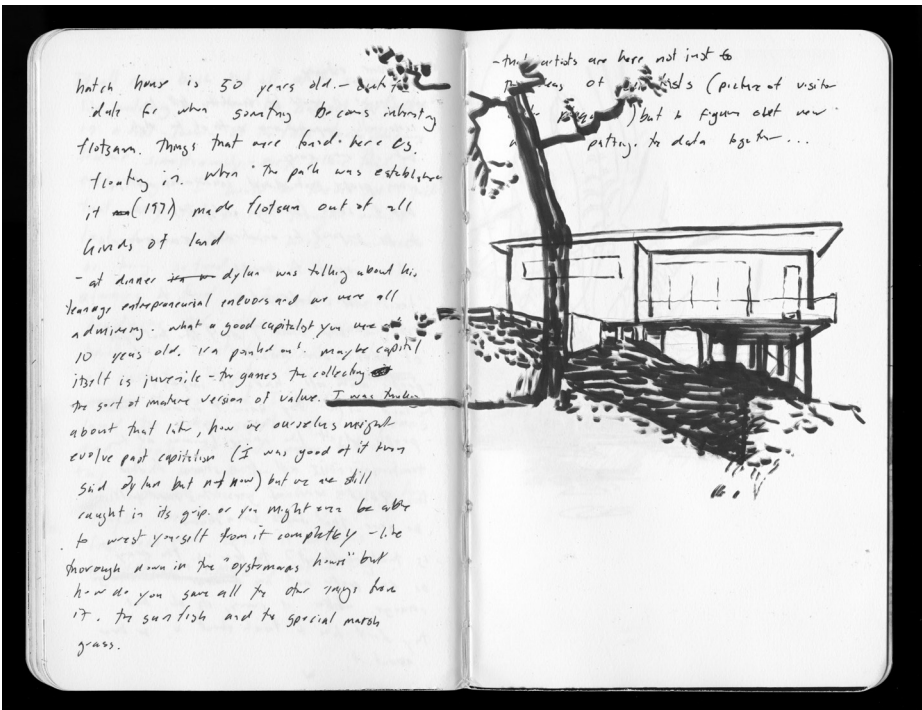 hatch house is 50 years old. -
date for when something becomes interesting
flotsam. Things that are found here as
floating in. when the park was established
it (197) made flotsam out of all
kinds of land
- at dinner dylan was talking about his
teenage entrepreneurial endevors and we were all
admiring. what a good capitalist you were at
10 years old. maybe capital
itself is juvenile - the games the collecting
the sort of imature version of value. I was thinking
about that later, how we ourselves might
evolve past capitalism (I was good at it then
said dylan but not now) but we are still
caught in its grip. or you might even be able
to wrest yourself from it completely - like
thorough down in the "oystermans house" but
how do you save all the other things from
it. the sun fish and the special marsh
grass.
- the artists are here not just to
of (picture of visitor
) but to figure out new
putting the data together...